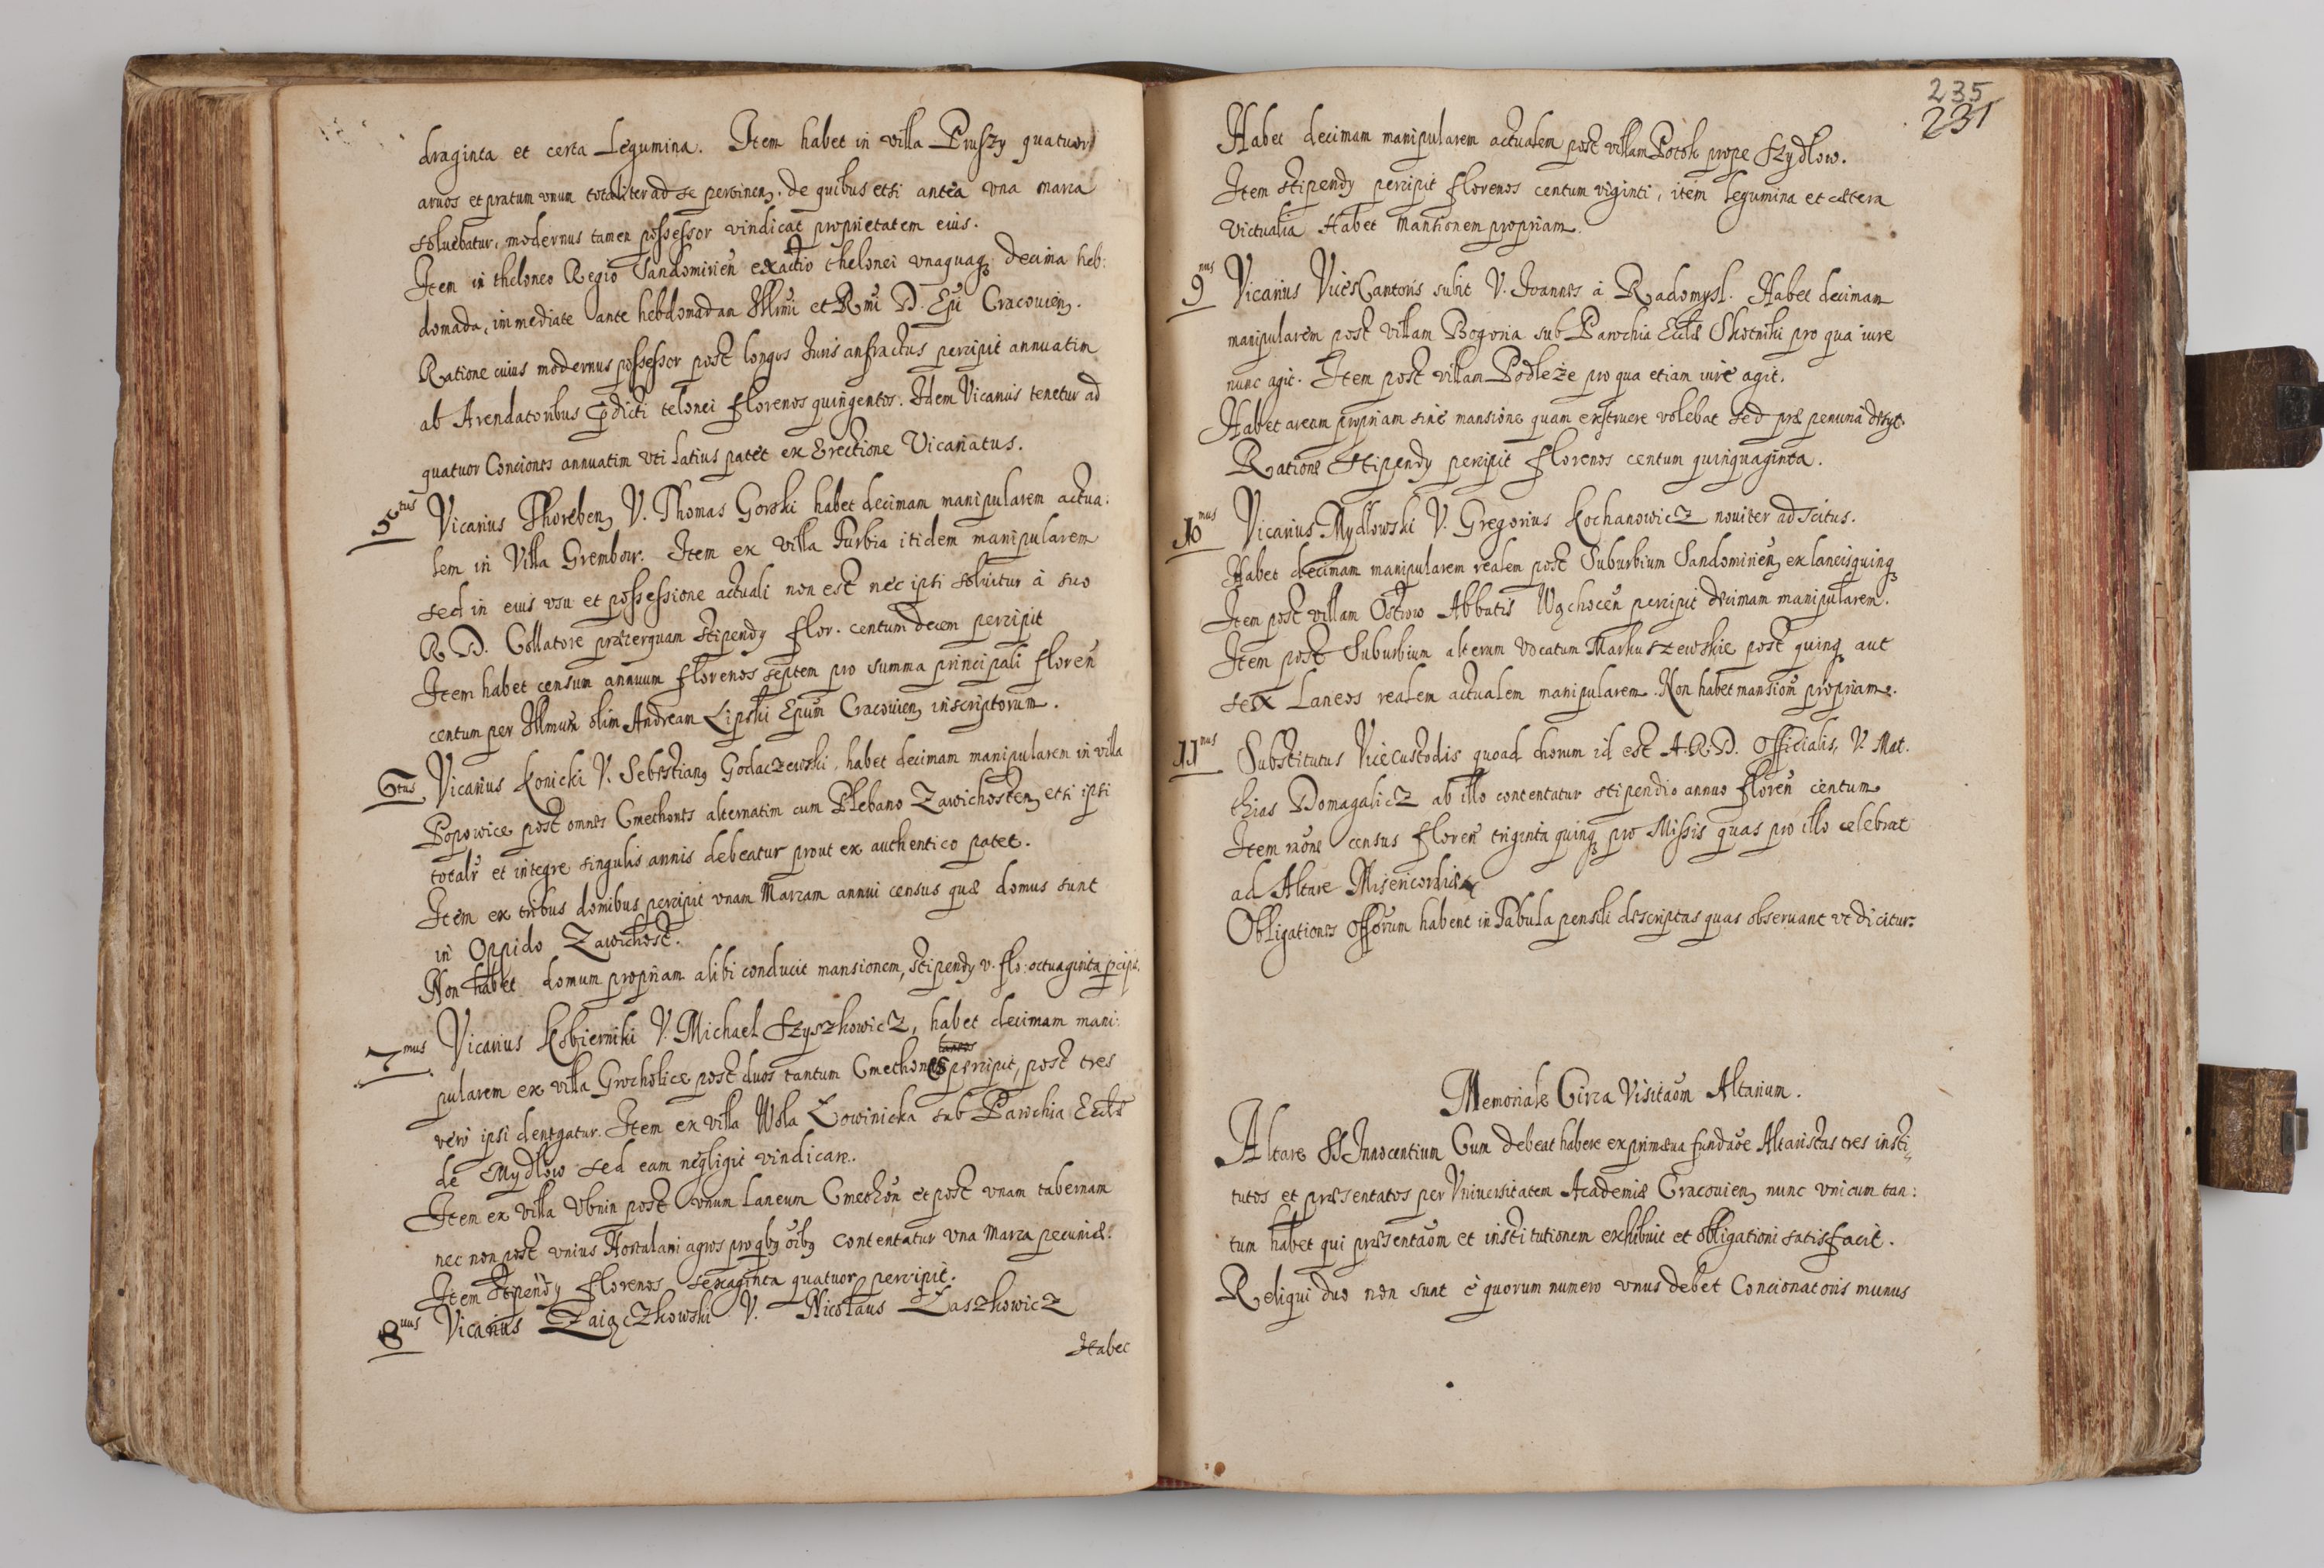 draginta et certa Legumina. Item habet in villa Pruszy quatuor
aruos et pratum unum totaliter ad se pertinen. de quibus etsi antea una marca
soluebatur, modernus tamen possessor vindicat proprietatem eius.
Item in theloneo Regio Sandomirien exactio thelonei unaquaq; decima heb:
domada, immediate ante hebdomadam Illmi et Rmi D. Epi Cracouien.
Ratione cuius modernus possessor post longos Iuris anfractus percipit annuatim
ab Arendatoribus pdicti telonei florenos quingentos. Idem Vicarius tenetur ad
quatuor Conciones annuatim uti latius patet ex Erectione Vicariatus.
5tus Vicarius Thoreben, V. Thomas Gorski habet decimam manipularem actua:
lem in Villa Grembow. Item ex villa Turbia itidem manipularem
sed in eius usu et possessione actuali non est nec ipsi soluitur à suo
R. D. Collatore præterquam stipendy flor. centum decem percipit
Item habet censum annuum florenos septem pro summa principali floren
centum per Illmum olim Andream Lipski Epum Cracouien, inscriptorum.
6tus Vicarius Konicki V. Sebastiany Godaczewski, habet decimam manipularem in villa
Popowice post omnes Cmethones alternatim cum Plebano Zawichosten, etsi ipsi
totalr et integre singulis annis debeatur prout ex authentico patet.
Item ex tribus domibus percipit unam Marcam annui census quæ domus sunt
in Oppido Zawichost.
Non habet domum propriam alibi conducit mansionem, stipendy v. flo: octuaginta pcipit.
7mus Vicarius Kobierniki V. Michael Szyszkowicz, habet decimam mani:
pularem ex villa Grocholice post duos tantum Cmethones percipit, post tres
vero ipsi denegatur. Item ex villa Wola Łowinicka sub Parochia Ecclæ
de Mydlow sed eam negligit vindicare.
Item ex villa Ubnin post unum Laneum Cmethon et post unam tabernam
nec non post unius Hortulani agros pro qby oiby contentatur una Marca pecuniæ.
Item Stipendy florenos sexaginta quatuor percipit.
8uus Vicarius Zaiączkowski V. Nicolaus Łaszkowicz
Habet
235
231
Habet decimam manipularem actualem post villam Potok prope Szydlow.
Item stipendy percipit florenos centum viginti, item legumina et cætera
victualia Habet Mansionem propriam.
9nus Vicarius ViceCantoris subit V. Ioannes à Radomysl. Habet decimam
manipularem post villam Bogoria sub Parochia Ecclæ Skotniki pro qua iure
nunc agit. Item post villam Podleże pro qua etiam iure agit.
Habet aream propriam sine mansione quam exstruere volebat sed præ penuria desyt.
Ratione Stipendy percipit florenos centum quinquaginta.
10mus Vicarius Mydlowski V. Gregorius Kochanowicz noviter adscitus.
Habet decimam manipularem realem post Suburbium Sandomirien, ex laneis quinq;
Item post villam Ostrow Abbatis Wąchocen percipit decimam manipularem.
Item post Suburbium alterum vocatum Markuszewskie post quinq; aut
sex Laneos realem actualem manipularem. Non habet mansiom propriam.
11mus Substitutus Vicecustodis quoad chorum id est A. R. D. Officialis, V. Mat.
thias Domagalicz ab illo contentatur stipendio annuo floren centum
Item raone census floren triginta quinq; pro Missis quas pro illo celebrat
ad Altare Misericordiæ
Obligationes Officorum habent in Tabula pensili descriptas quas obseruant ut dicitur.
Memoriale Circa Visitaom Altarium.
Altare SS Innocentium Cum debeat habere ex primæua fundaoe Altaristas tres insti,,
tutos et præsentatos per Vniuersitatem Academiæ Cracouien, nunc unicum tan:
tum habet qui præsentaom et institutionem exhibuit et obligationi satisfacit.
Reliqui duo non sunt è quorum numero unus debet Concionatoris munus